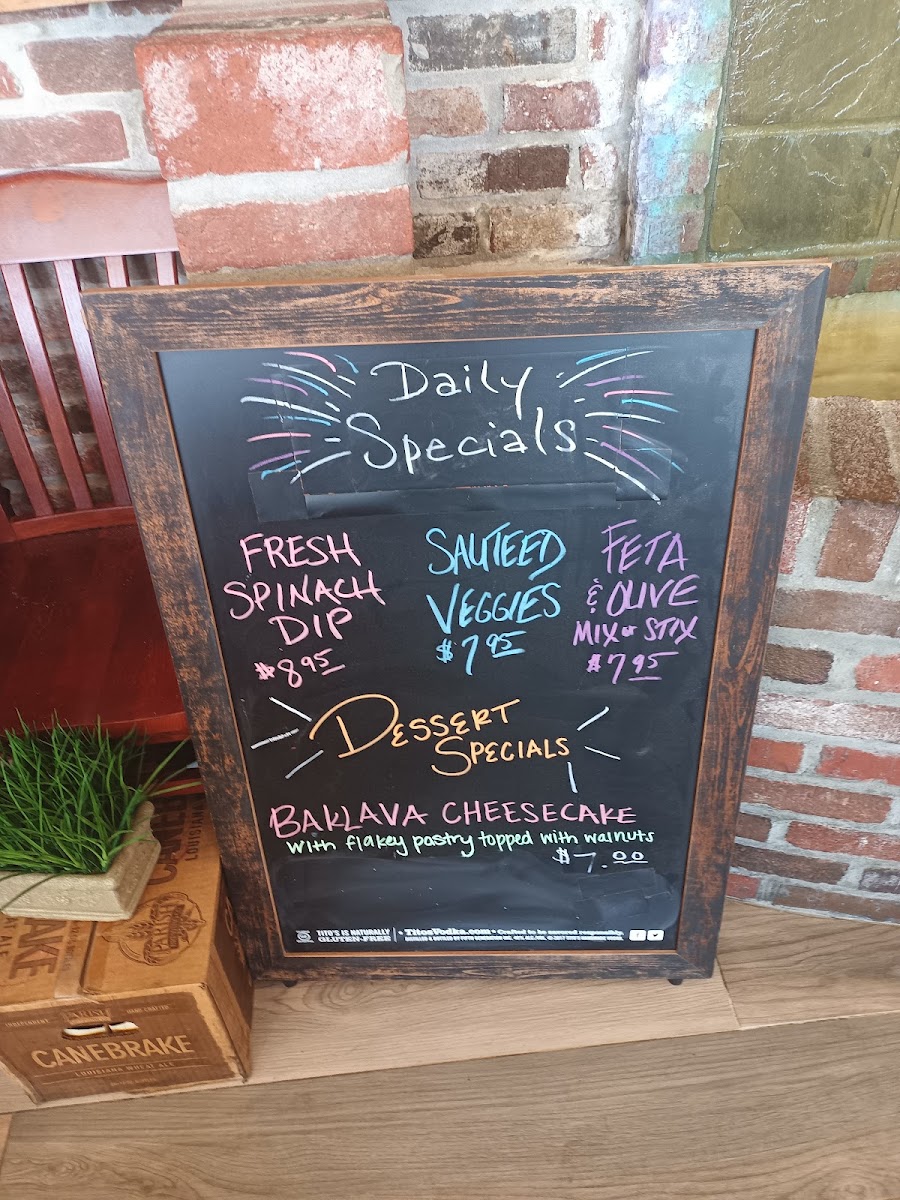 Daily
Specials
FRESH
SPINACH
DIP
$8.95
SAUTEED
VEGGIES
$7.95
FETA
& OLIVE
MIX or STIX
$7.95
DESSERT
SPECIALS
BAKLAVA CHEESECAKE
with flakey pastry topped with walnuts
$7.00
TITO'S IS NATURALLY
GLUTEN-FREE
TitosVodka.com • Crafted to be savored responsibly.
CANEBRAKE
LOUISIANA WHEAT ALE
INDEPENDENT
HAND CRAFTED
PARISH